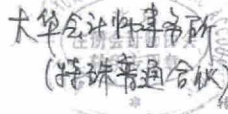 大华会计师事务所
(特殊普通合伙)